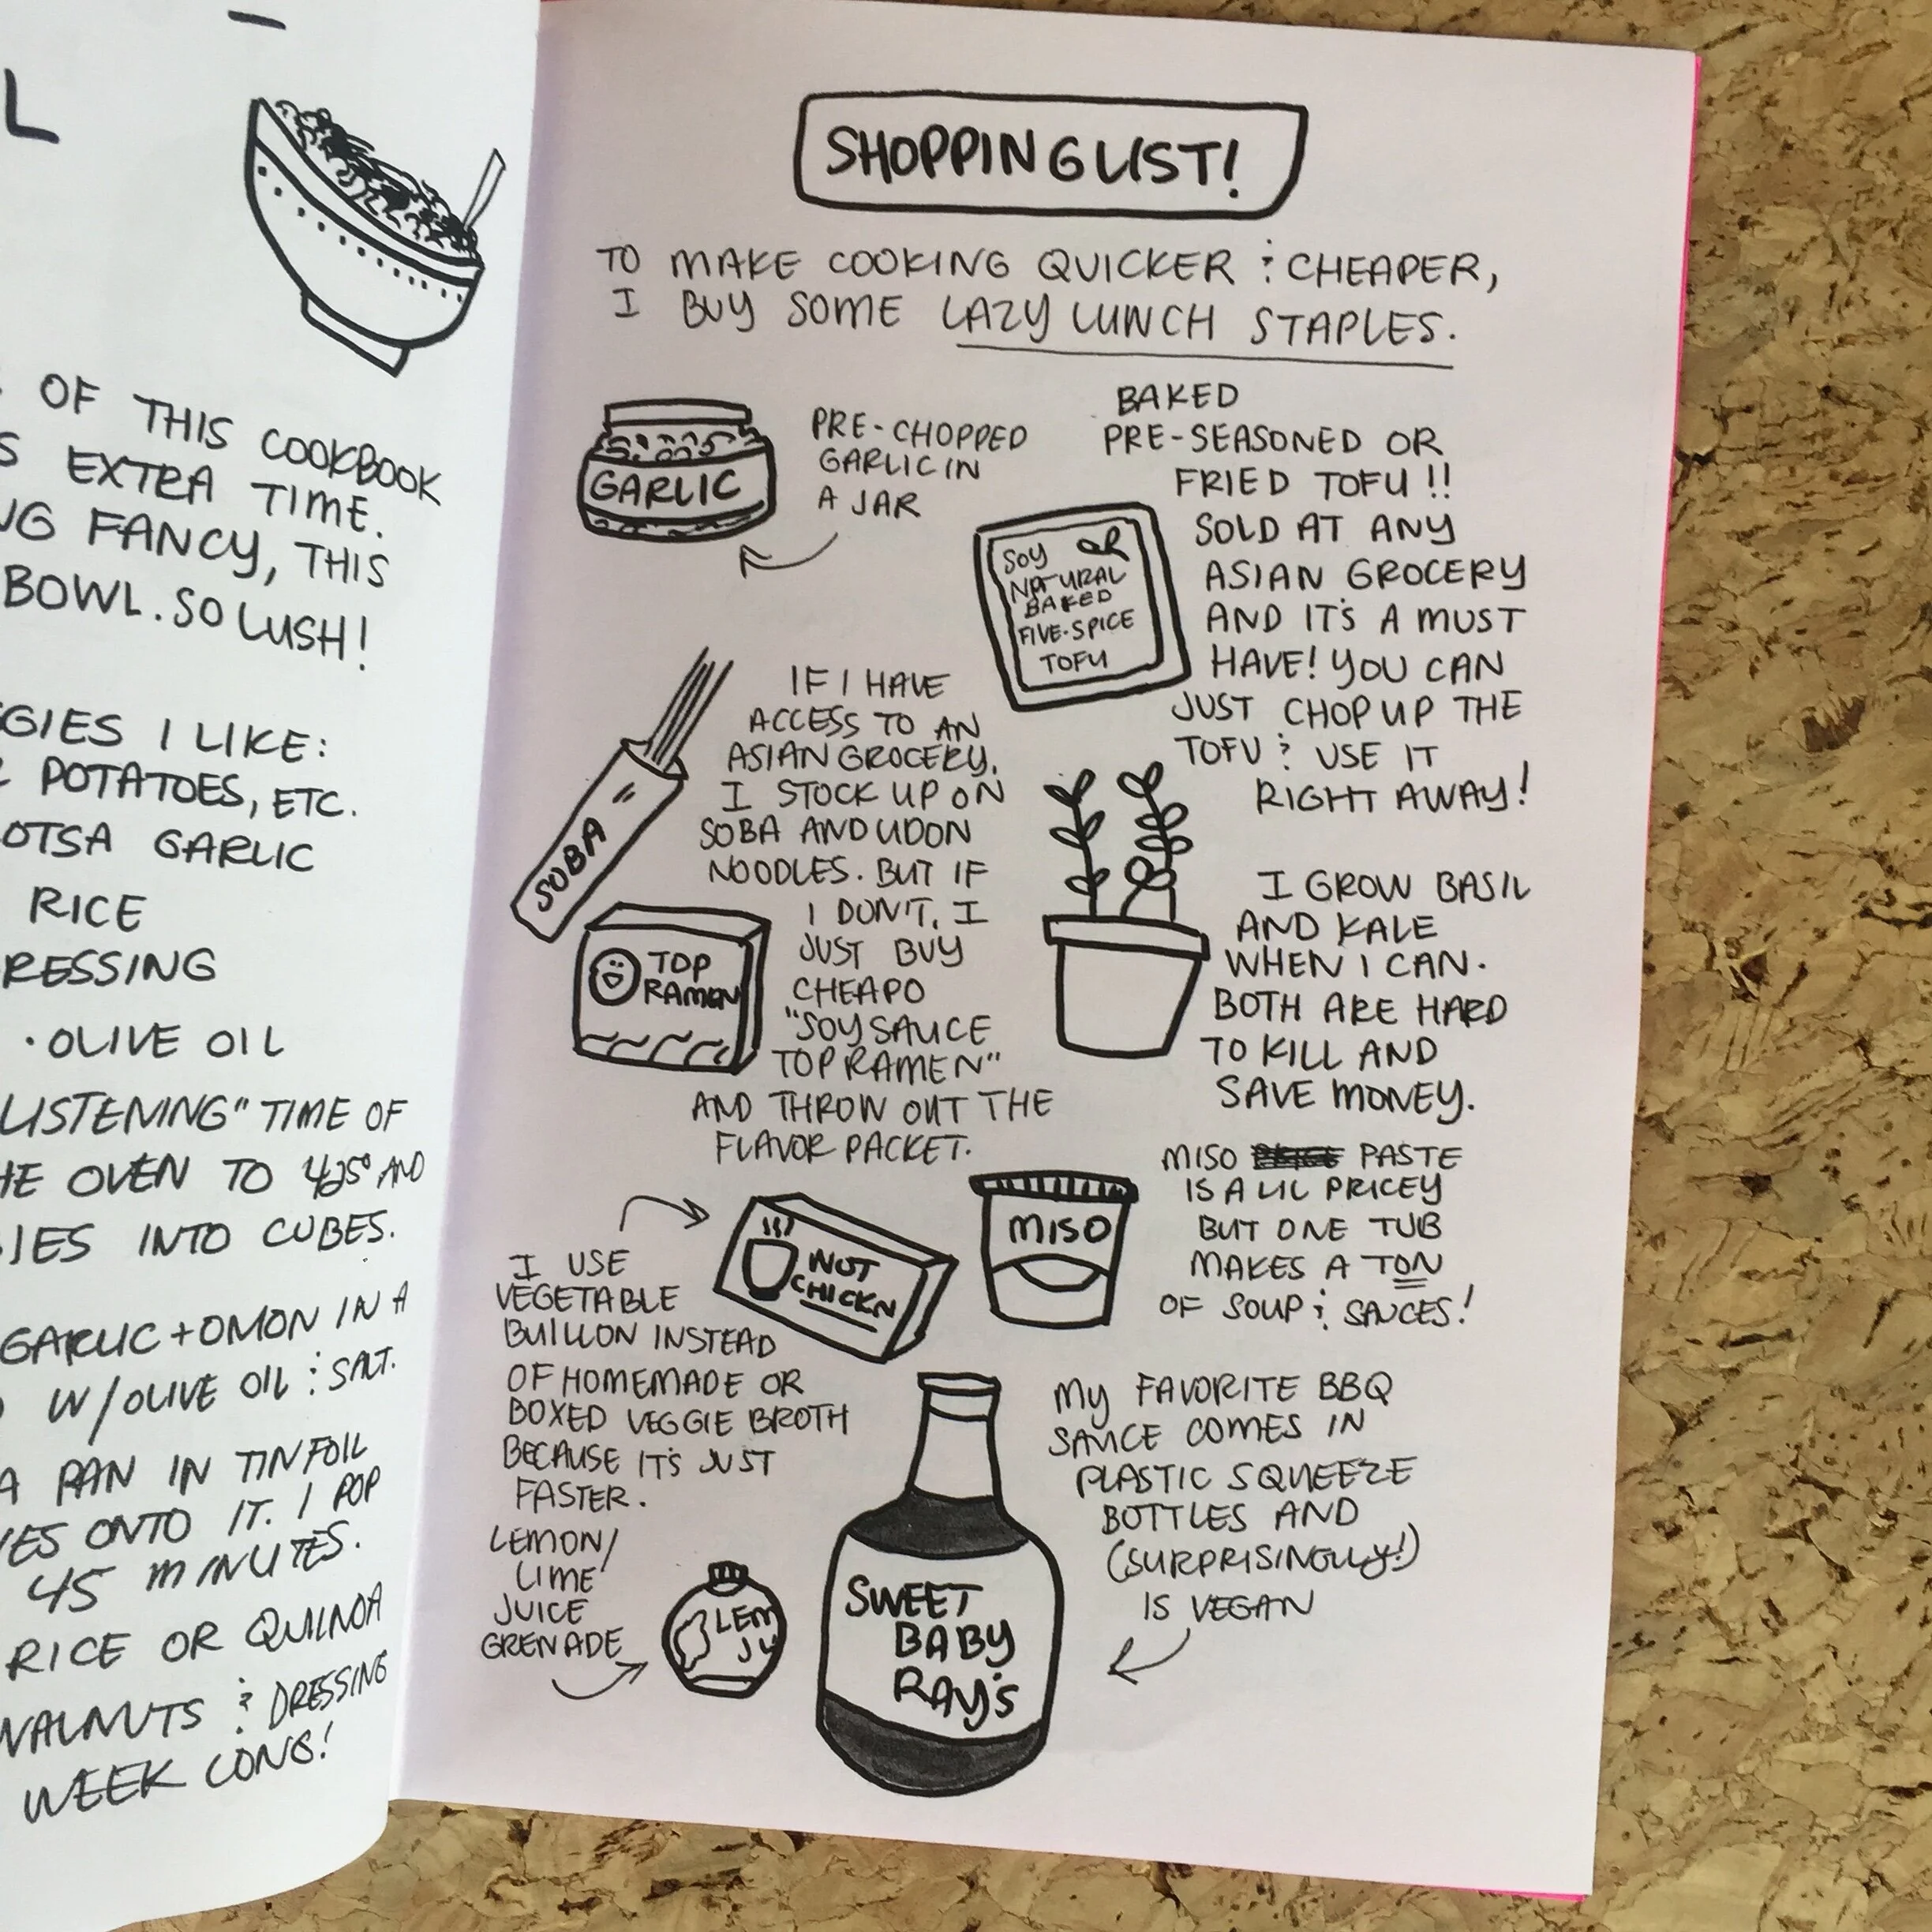 L
OF THIS COOKBOOK
EXTRA TIME.
FANCY, THIS
BOWL. SO LUSH!
I LIKE:
POTATOES, ETC.
GARLIC
RICE
· OLIVE OIL
LISTENING" TIME OF
OVEN TO 425° AND
INTO CUBES.
GARLIC + ONION IN A
W/OLIVE OIL & SALT.
A PAN IN TINFOIL
ONTO IT. I POP
45 MINUTES.
RICE OR QUINOA
WALNUTS & DRESSING
WEEK LONG!
SHOPPING LIST!
TO MAKE COOKING QUICKER & CHEAPER,
I BUY SOME LAZY LUNCH STAPLES.
GARLIC
PRE-CHOPPED
GARLIC IN
A JAR
BAKED
PRE-SEASONED OR
FRIED TOFU!!
SOLD AT ANY
ASIAN GROCERY
AND IT'S A MUST
HAVE! YOU CAN
JUST CHOP UP THE
TOFU & USE IT
RIGHT AWAY!
SOY
NATURAL
BAKED
FIVE-SPICE
TOFU
SOBA
IF I HAVE
ACCESS TO AN
ASIAN GROCERY,
I STOCK UP ON
SOBA AND UDON
NOODLES. BUT IF
I DON'T, I
JUST BUY
CHEAPO
"SOY SAUCE
TOP RAMEN"
AND THROW OUT THE
FLAVOR PACKET.
TOP
RAMEN
I GROW BASIL
AND KALE
WHEN I CAN.
BOTH ARE HARD
TO KILL AND
SAVE MONEY.
I USE
VEGETABLE
BUILLON INSTEAD
OF HOMEMADE OR
BOXED VEGGIE BROTH
BECAUSE IT'S JUST
FASTER.
NOT
CHICKN
MISO
MISO PASTE
IS A LIL PRICEY
BUT ONE TUB
MAKES A TON
OF SOUP & SAUCES!
LEMON/
LIME
JUICE
GRENADE
LEM
JU
SWEET
BABY
RAY'S
MY FAVORITE BBQ
SAUCE COMES IN
PLASTIC SQUEEZE
BOTTLES AND
(SURPRISINGLY!)
IS VEGAN